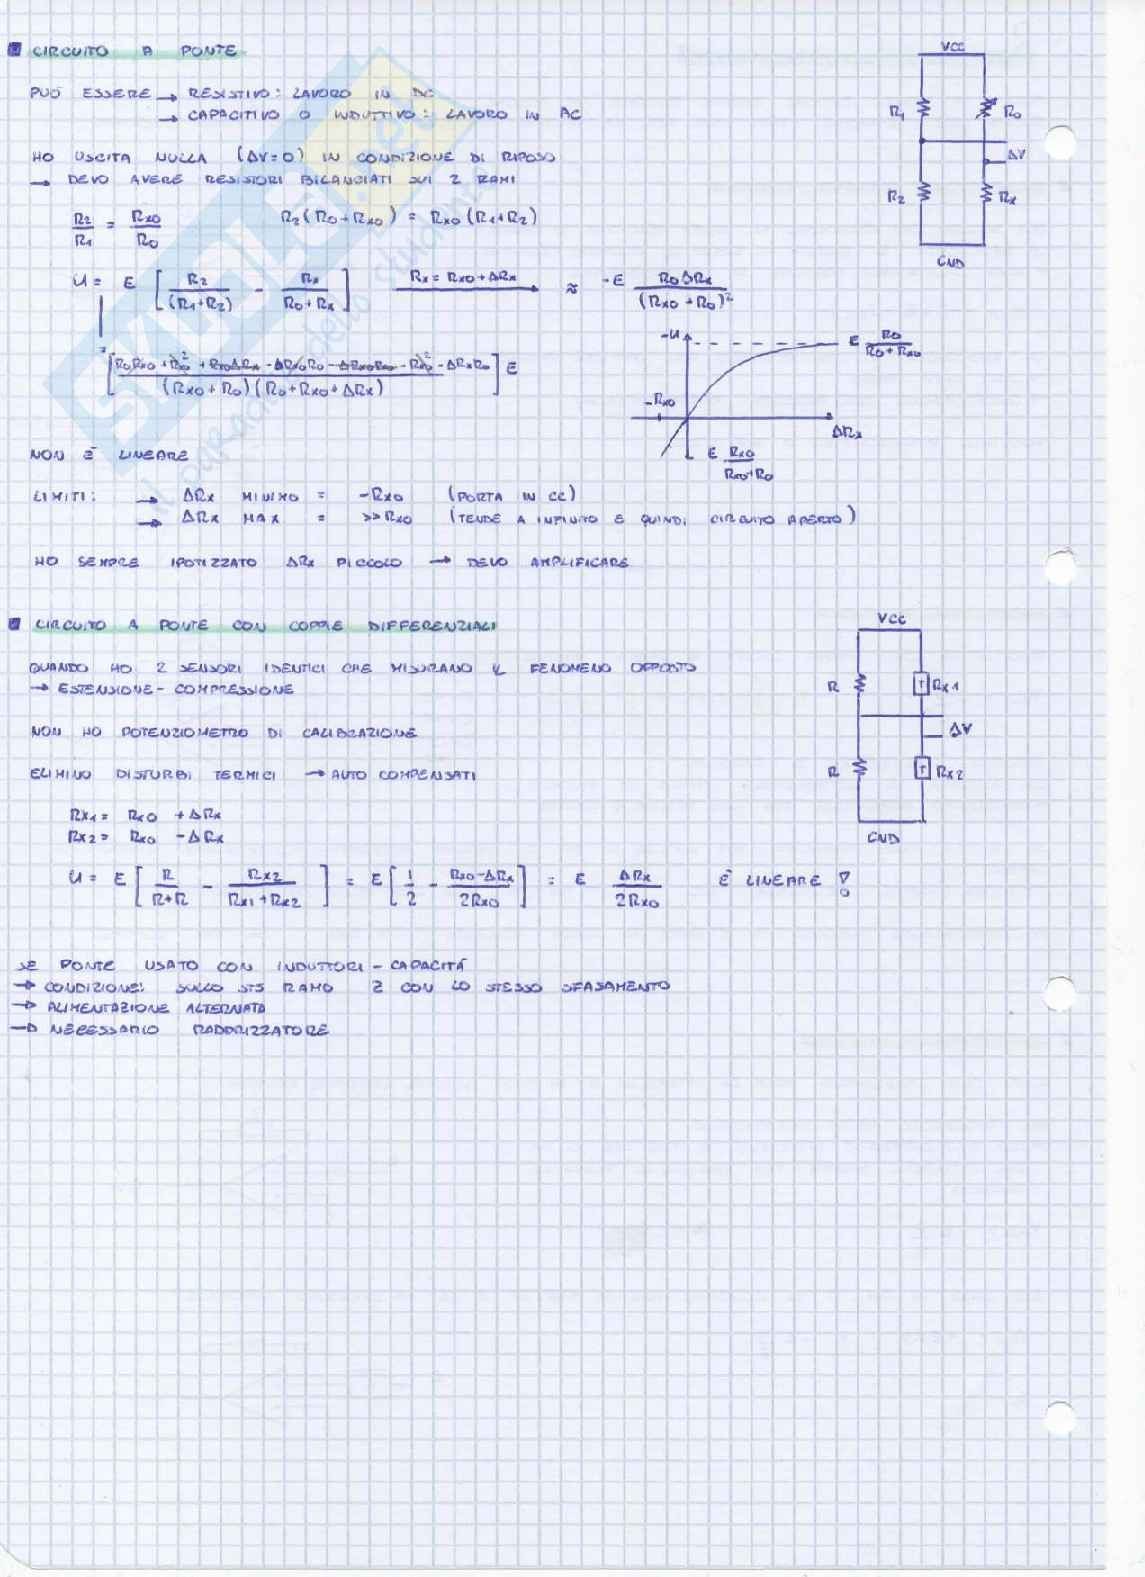 CIRCUITO A PONTE
PUÒ ESSERE → RESISTIVO: LAVORO IN DC
→ CAPACITIVO O INDUTTIVO: LAVORO IN AC
HO USCITA NULLA (ΔV=0) IN CONDIZIONE DI RIPOSO
→ DEVO AVERE RESISTORI BILANCIATI SUI 2 RAMI
R2/R1 = Rx0/R0   R2(R0+Rx0) = Rx0(R1+R2)
U = E [ R2/(R1+R2) - Rx/(R0+Rx) ]   Rx = Rx0+ΔRx →   ≈ -E R0ΔRx/(Rx0+R0)²
(Rx0+R0)(R0+Rx0+ΔRx) ] E
NON È LINEARE
LIMITI: → ΔRx MINIMO = -Rx0 (PORTA IN CC)
→ ΔRx MAX = >>Rx0 (TENDE A INFINITO E QUINDI CIRCUITO APERTO)
HO SEMPRE IPOTIZZATO ΔRx PICCOLO → DEVO AMPLIFICARE
VCC
R1
R0
ΔV
R2
Rx
GND
-U
E R0/(R0+Rx0)
-Rx0
ΔRx
E Rx0/(Rx0+R0)
CIRCUITO A PONTE CON COPPIE DIFFERENZIALI
QUANDO HO 2 SENSORI IDENTICI CHE MISURANO IL FENOMENO OPPOSTO
→ ESTENSIONE-COMPRESSIONE
NON HO POTENZIOMETRO DI CALIBRAZIONE
ELIMINO DISTURBI TERMICI → AUTO COMPENSATI
Rx1 = Rx0 + ΔRx
Rx2 = Rx0 - ΔRx
U = E [ R/(R+R) - Rx2/(Rx1+Rx2) ] = E [ 1/2 - (Rx0-ΔRx)/2Rx0 ] = E ΔRx/2Rx0   È LINEARE !
VCC
R
Rx1
ΔV
R
Rx2
GND
SE PONTE USATO CON INDUTTORI-CAPACITÀ
→ CONDIZIONE: SULLO STS RAMO Z CON LO STESSO SFASAMENTO
→ ALIMENTAZIONE ALTERNATA
→ NECESSARIO RADDRIZZATORE
SKUOLA.net